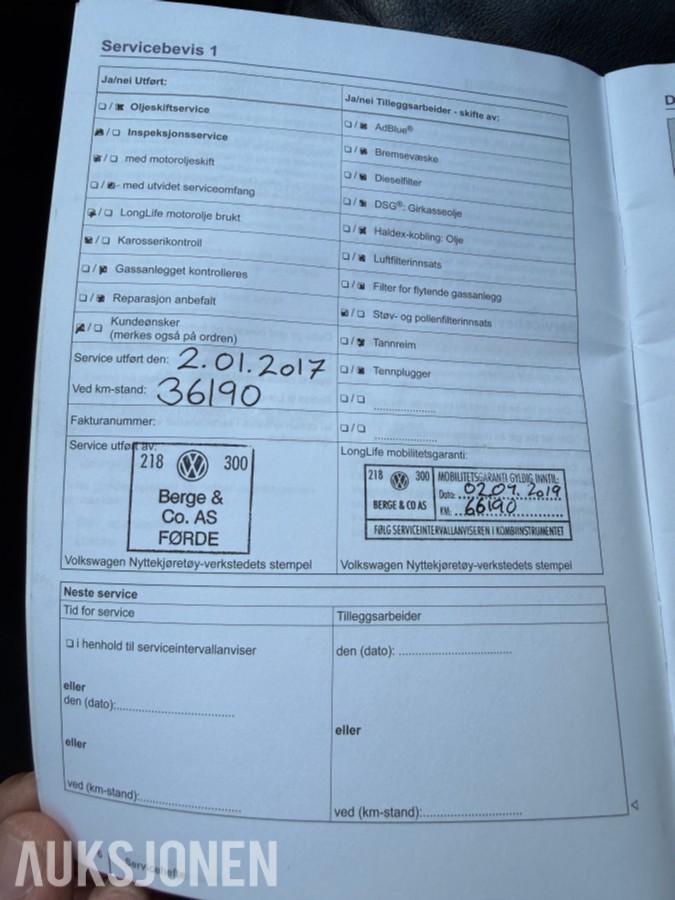 Servicebevis 1
D
Ja/nei Utført:
☐/☒ Oljeskiftservice
☒/☐ Inspeksjonsservice
☒/☐ med motoroljeskift
☐/☒ - med utvidet serviceomfang
☒/☐ LongLife motorolje brukt
☒/☐ Karosserikontroll
☐/☒ Gassanlegget kontrolleres
☐/☒ Reparasjon anbefalt
☒/☐ Kundeønsker
(merkes også på ordren)
Service utført den: 2.01.2017
Ved km-stand: 36190
Fakturanummer:
Service utført av:
218 300
Berge &
Co. AS
FØRDE
Volkswagen Nyttekjøretøy-verkstedets stempel
Ja/nei Tilleggsarbeider - skifte av:
☐/☒ AdBlue®
☐/☒ Bremsevæske
☐/☒ Dieselfilter
☐/☒ DSG®: Girkasseolje
☐/☒ Haldex-kobling: Olje
☐/☒ Luftfilterinnsats
☐/☒ Filter for flytende gassanlegg
☒/☐ Støv- og pollenfilterinnsats
☐/☒ Tannreim
☐/☒ Tennplugger
☐/☐ ....................
☐/☐ ....................
LongLife mobilitetsgaranti:
218 300
BERGE & CO AS
MOBILITETSGARANTI GYLDIG INNTIL:
Dato: 02.01.2019
KM: 66190
FØLG SERVICEINTERVALLANVISEREN I KOMBIINSTRUMENTET
Volkswagen Nyttekjøretøy-verkstedets stempel
Neste service
Tid for service
☐ i henhold til serviceintervallanviser
eller
den (dato):....................
eller
ved (km-stand):....................
Tilleggsarbeider
den (dato): ....................
eller
ved (km-stand):....................
6 Servicehefte
AUKSJONEN